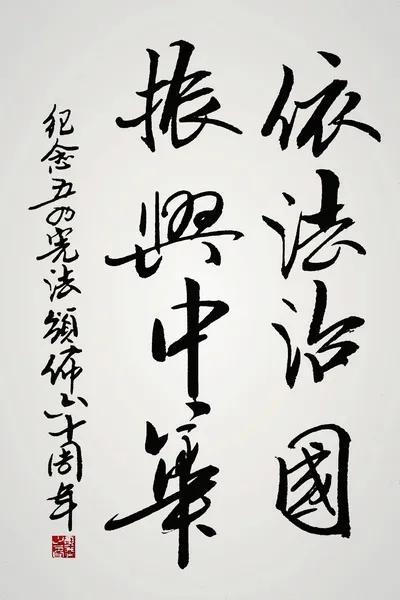 依法治國
振興中華
紀念五四憲法頒佈六十周年